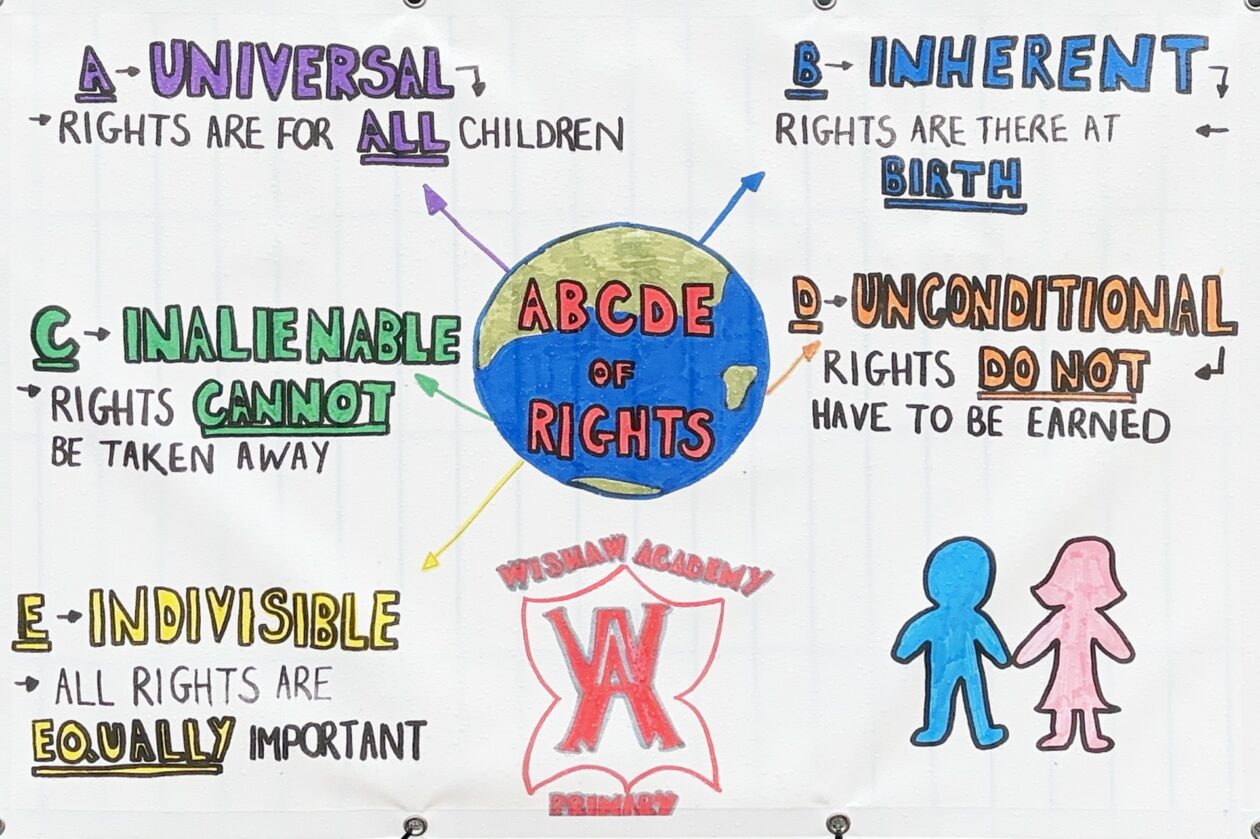 A → UNIVERSAL
→ RIGHTS ARE FOR ALL CHILDREN
B → INHERENT
RIGHTS ARE THERE AT ←
BIRTH
ABCDE
OF
RIGHTS
C → INALIENABLE
→ RIGHTS CANNOT
BE TAKEN AWAY
D → UNCONDITIONAL
RIGHTS DO NOT
HAVE TO BE EARNED
E → INDIVISIBLE
→ ALL RIGHTS ARE
EQUALLY IMPORTANT
WISHAW ACADEMY
WA
PRIMARY